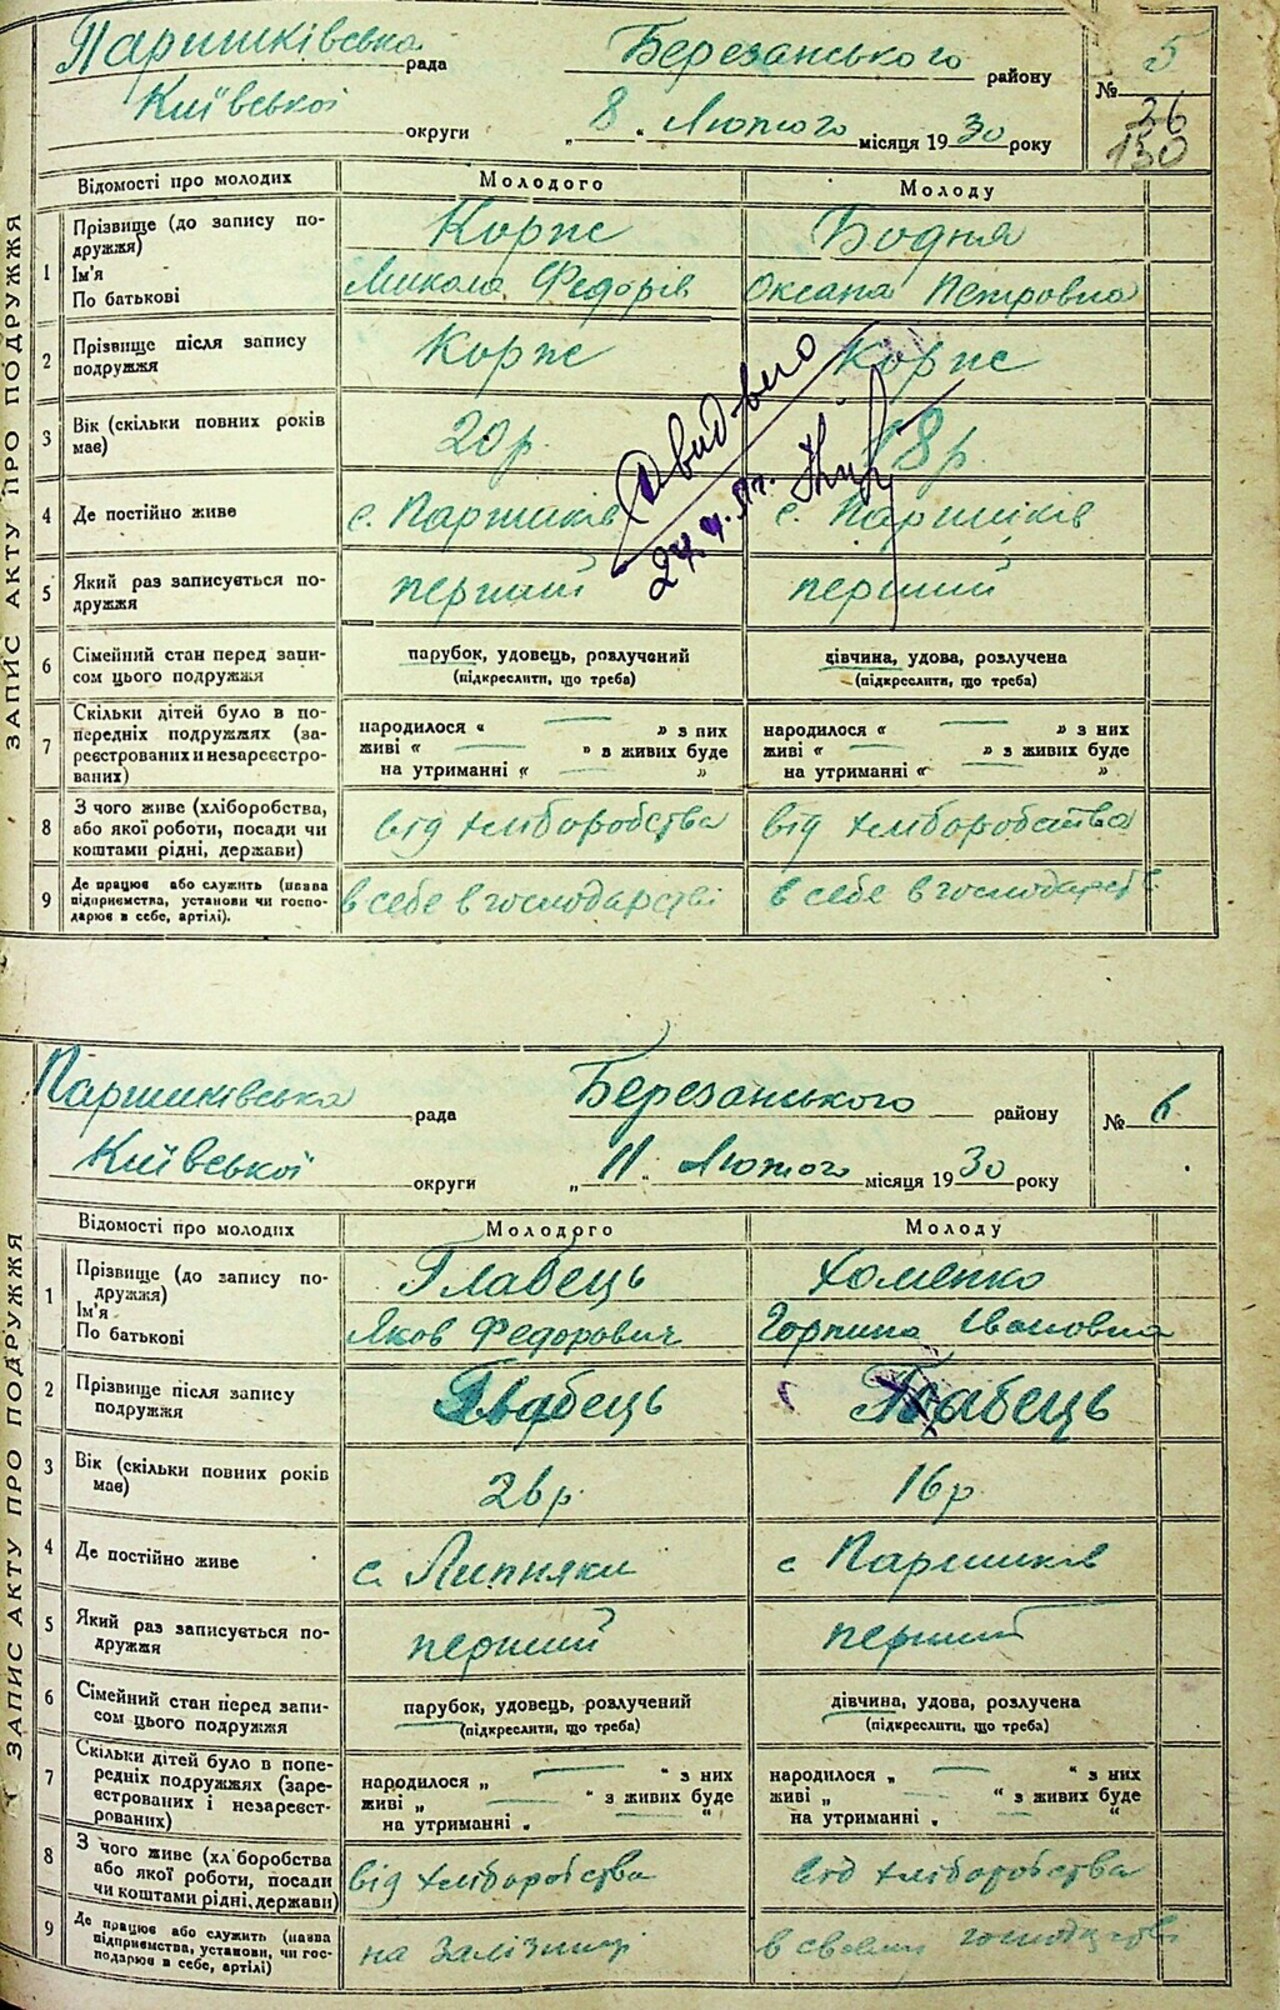 Паришківська рада Березанського району № 5
Київської округи „ 8 “ Лютого місяця 1930 року 26
150
ЗАПИС АКТУ ПРО ПОДРУЖЖЯ
Відомості про молодих Молодого Молоду
1 Прізвище (до запису по- Корпс Бодня
дружжя)
Ім'я Микола Федорів Оксана Петровна
По батькові
2 Прізвище після запису Корпс Корпс
подружжя
3 Вік (скільки повних років 20 р. 18 р.
має)
4 Де постійно живе с. Паришків с. Паришків
5 Який раз записується по- перший перший
дружжя
6 Сімейний стан перед запи- парубок, удовець, розлучений дівчина, удова, розлучена
сом цього подружжя (підкреслити, що треба) (підкреслити, що треба)
7 Скільки дітей було в по- народилося « » з них народилося « » з них
передніх подружжях (за- живі « » в живих буде живі « » з живих буде
реєстрованих и незареєстро- на утриманні « » на утриманні « »
ваних)
8 З чого живе (хліборобства, від хліборобства від хліборобства
або якої роботи, посади чи
коштами рідні, держави)
9 Де працює або служить (назва в себе в господарстві в себе в господарстві
підприємства, установи чи госпо-
дарює в себе, артілі).
Паришківська рада Березанського району № 6
Київської округи „ 11 “ Лютого місяця 1930 року
ЗАПИС АКТУ ПРО ПОДРУЖЖЯ
Відомості про молодих Молодого Молоду
1 Прізвище (до запису по- Глабець Хоменко
дружжя)
Ім'я Яков Федорович Горпина Івановна
По батькові
2 Прізвище після запису Глабець Глабець
подружжя
3 Вік (скільки повних років 26 р 16 р
має)
4 Де постійно живе с. Липняки с Паришків
5 Який раз записується по- перший перший
дружжя
6 Сімейний стан перед запи- парубок, удовець, розлучений дівчина, удова, розлучена
сом цього подружжя (підкреслити, що треба) (підкреслити, що треба)
7 Скільки дітей було в попе- народилося „ “ з них народилося „ “ з них
редніх подружжях (заре- живі „ “ з живих буде живі „ “ з живих буде
єстрованих і незареєст- на утриманні „ “ на утриманні „ “
рованих)
8 З чого живе (хл боробства від хліборобства від хліборобства
або якої роботи, посади
чи коштами рідні, держави)
9 Де працює або служить (назва на залізниці в своєму господарстві
підприємства, установи, чи гос-
подарює в себе, артілі)